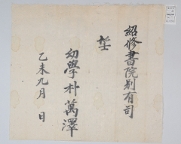 紹修書院別有司
幼學朴萬澤
乙未九月 日